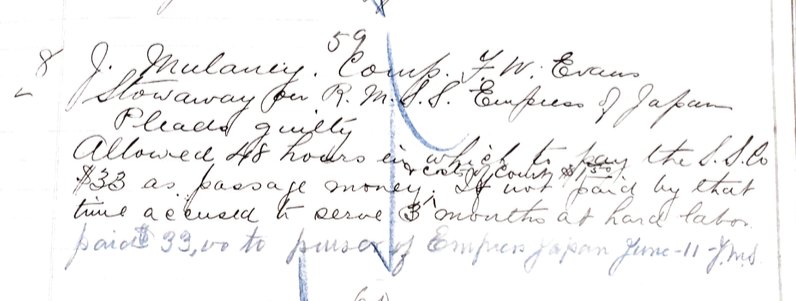 59
8 J. Mulaney. Comp. F. W. Evans
Stowaway on R. M. S. S. Empress of Japan
Pleads guilty
Allowed 48 hours in which to pay the S. S. Co
+ cost of Court $1.50
$33 as passage money. If not paid by that
time accused to serve 3 months at hard labor
paid $33,00 to purser of Empress Japan June-11-